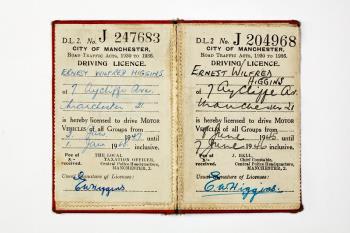 D.L.2. No. J 247683
CITY OF MANCHESTER.
ROAD TRAFFIC ACTS, 1930 to 1936.
DRIVING LICENCE.
ERNEST WILFRED HIGGINS
of 7 Aycliffe Ave.
Manchester 21
is hereby licensed to drive MOTOR
VEHICLES of all Groups from
until
inclusive.
Fee of
5/-
received.
THE LOCAL
TAXATION OFFICER,
Central Police Headquarters,
MANCHESTER, 2.
Usual Signature of Licensee:
E W Higgins
D.L.2 No. J 204968
CITY OF MANCHESTER.
ROAD TRAFFIC ACTS, 1930 to 1936.
DRIVING LICENCE.
ERNEST WILFRED
HIGGINS
of 7 Aycliffe Av.
Manchester 21
is hereby licensed to drive MOTOR
VEHICLES of all Groups from
June 1945 until
June 1946 inclusive.
Fee of
5/-
received.
J. BELL,
Chief Constable,
Central Police Headquarters,
MANCHESTER, 2
Usual Signature of Licensee:
E.W.Higgins